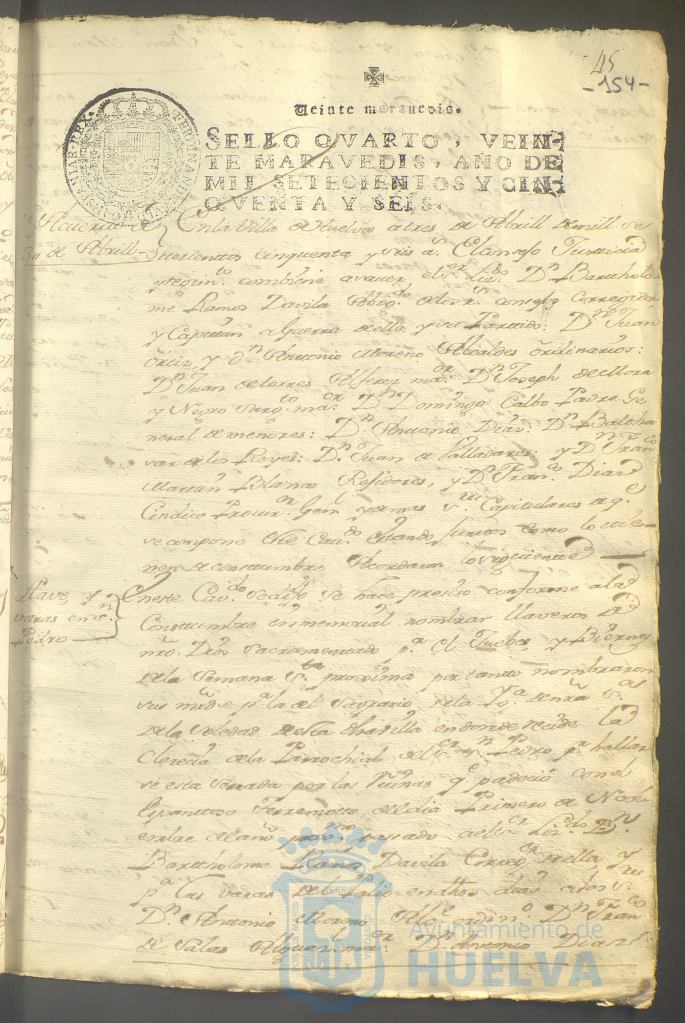 45
-154-
Veinte maravedis.
SELLO QVARTO, VEIN-
TE MARAVEDIS, AÑO DE
MIL SETECIENTOS Y CIN-
QVENTA Y SEIS.
Acuerdo de
3 de Abrill
En la Villa de Huelva a tres de Abrill de mill se
tecientos cinquenta y seis a.s El Consejo Justicia
y rejim.to combiene a saver el s.or Liz.do D.n Bartholo
me Ramos Davila Abog.do de los r.s consejos Correxidor
y Capitan a Guerra de ella y su Partido: D.n Juan
Ortiz, y D.n Antonio Moreno Alcaldes Ordinarios:
D.n Juan de torres Alferez ma.or D.n Joseph de Mora
y Negro Sarg.to ma.or D.n Domingo Calbo Padre Ge
neral de menores: D.n Antonio Diaz: D.n Baltha
sar de los Reyes: D.n Juan de Valladares: y D.n Fran.co
Martin Blanco Rejidores, y D.n Fran.co Diaz
Cindico Procur.or Gen.l y demas s.res Capitulares de q.e
se compone este Cav.do estando juntos como lo tie
nen de constumbre Acordaron lo siguiente
Llave, y
varas en S.n
Pedro
En este Cav.do se dijo se hace presiso conforme a la
Constumbre inmemorial nombrar llaveros de
nro. Dios Sacramentado p.a el Juebes, y Biernes
de la Semana S.ta proxima por tanto nombraron
sus mrds. p.a la del Sagrario de la Yg.a de nra S.ra
de la Soledad de esta dha Villa en donde recide la
Clerecia de la Parrochial de S.or S.n Pedro p.r hallar
se esta serrada por las Ruinas q.e padeció con el
Espantoso Terremotto del dia Primero de Nobi
embre del año prox.mo pasado al S.or Liz.do D.n
Bartholome Ramos Davila Correg.or de ella y
p.a las varas del Palio en dhos dias a los s.res
D.n Antonio Moreno Alc.e ordin.o D.n Fran.co
de Salas Alguacil ma.or D.n Antonio Diaz
Ayuntamiento de
HUELVA